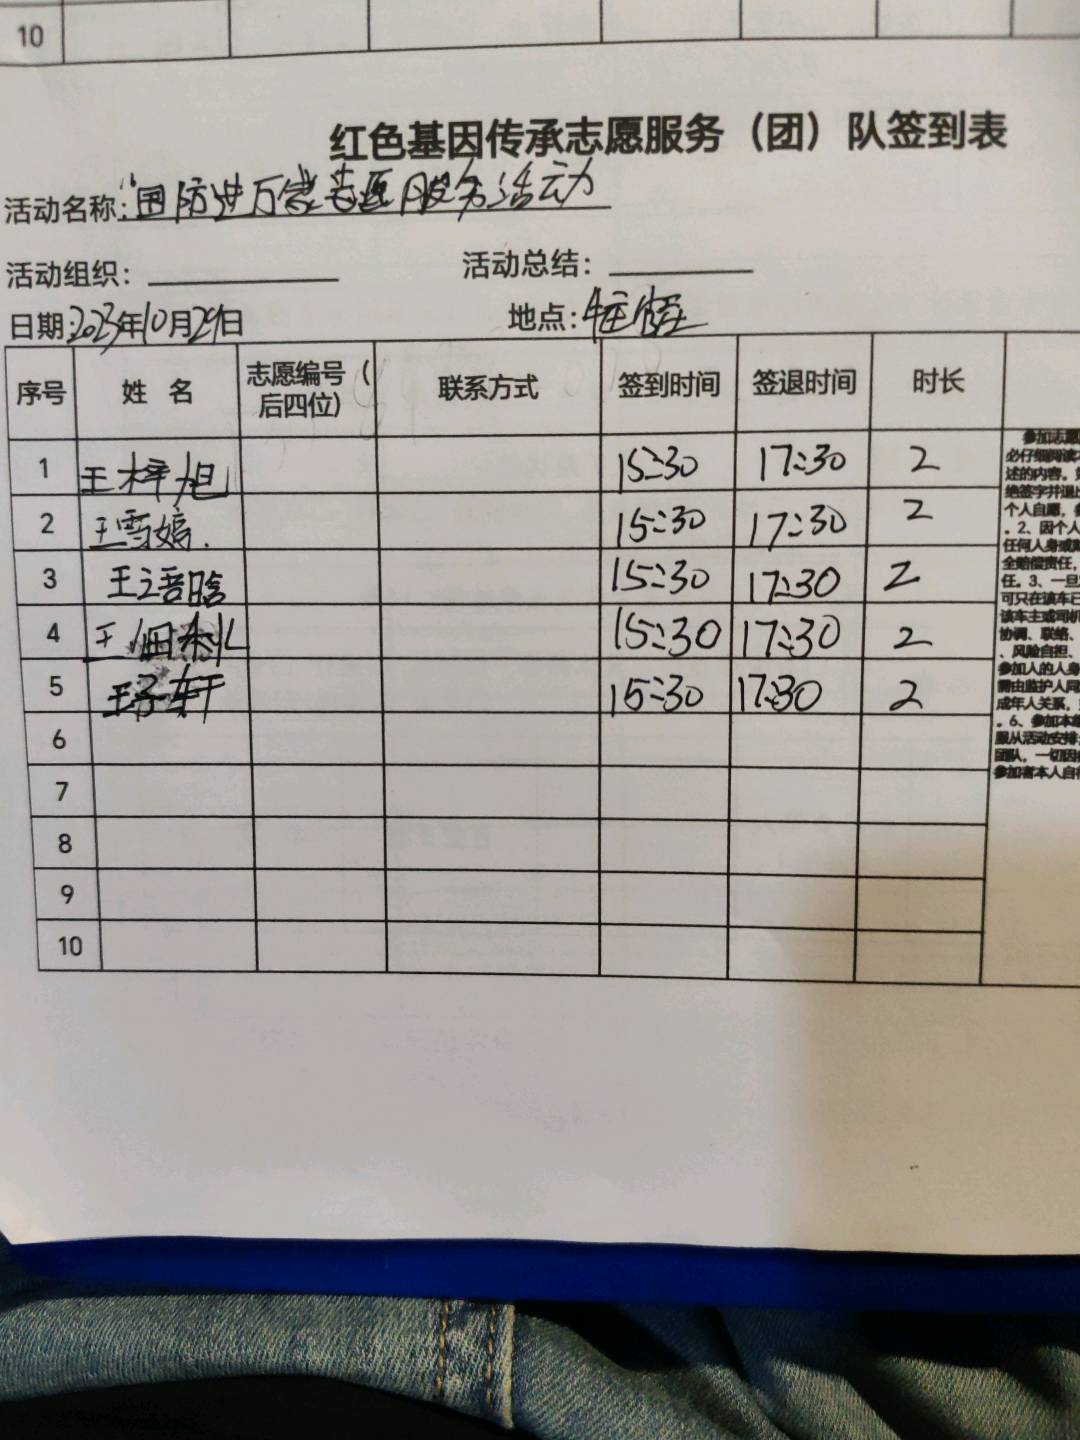 10
红色基因传承志愿服务（团）队签到表
活动名称："国防进万家志愿服务活动
活动组织： 活动总结：
日期：2023年10月29日 地点：
序号 姓 名 志愿编号（后四位） 联系方式 签到时间 签退时间 时长
1 王梓旭 15:30 17:30 2
2 王雪嫱 15:30 17:30 2
3 王语晗 15:30 17:30 2
4 王 15:30 17:30 2
5 王子轩 15:30 17:30 2
6
7
8
9
10
参加志愿
必仔细阅读本
述的内容。
绝签字并退出
个人自愿，
。2、因个人
任何人身或
全赔偿责任，
任。3、一旦
可只在该车已
该车主或司机
协调、联络、
、风险自担、
参加人的人身
需由监护人同
成年人关系，
。6、参加本
服从活动安排
团队，一切因
参加者本人自